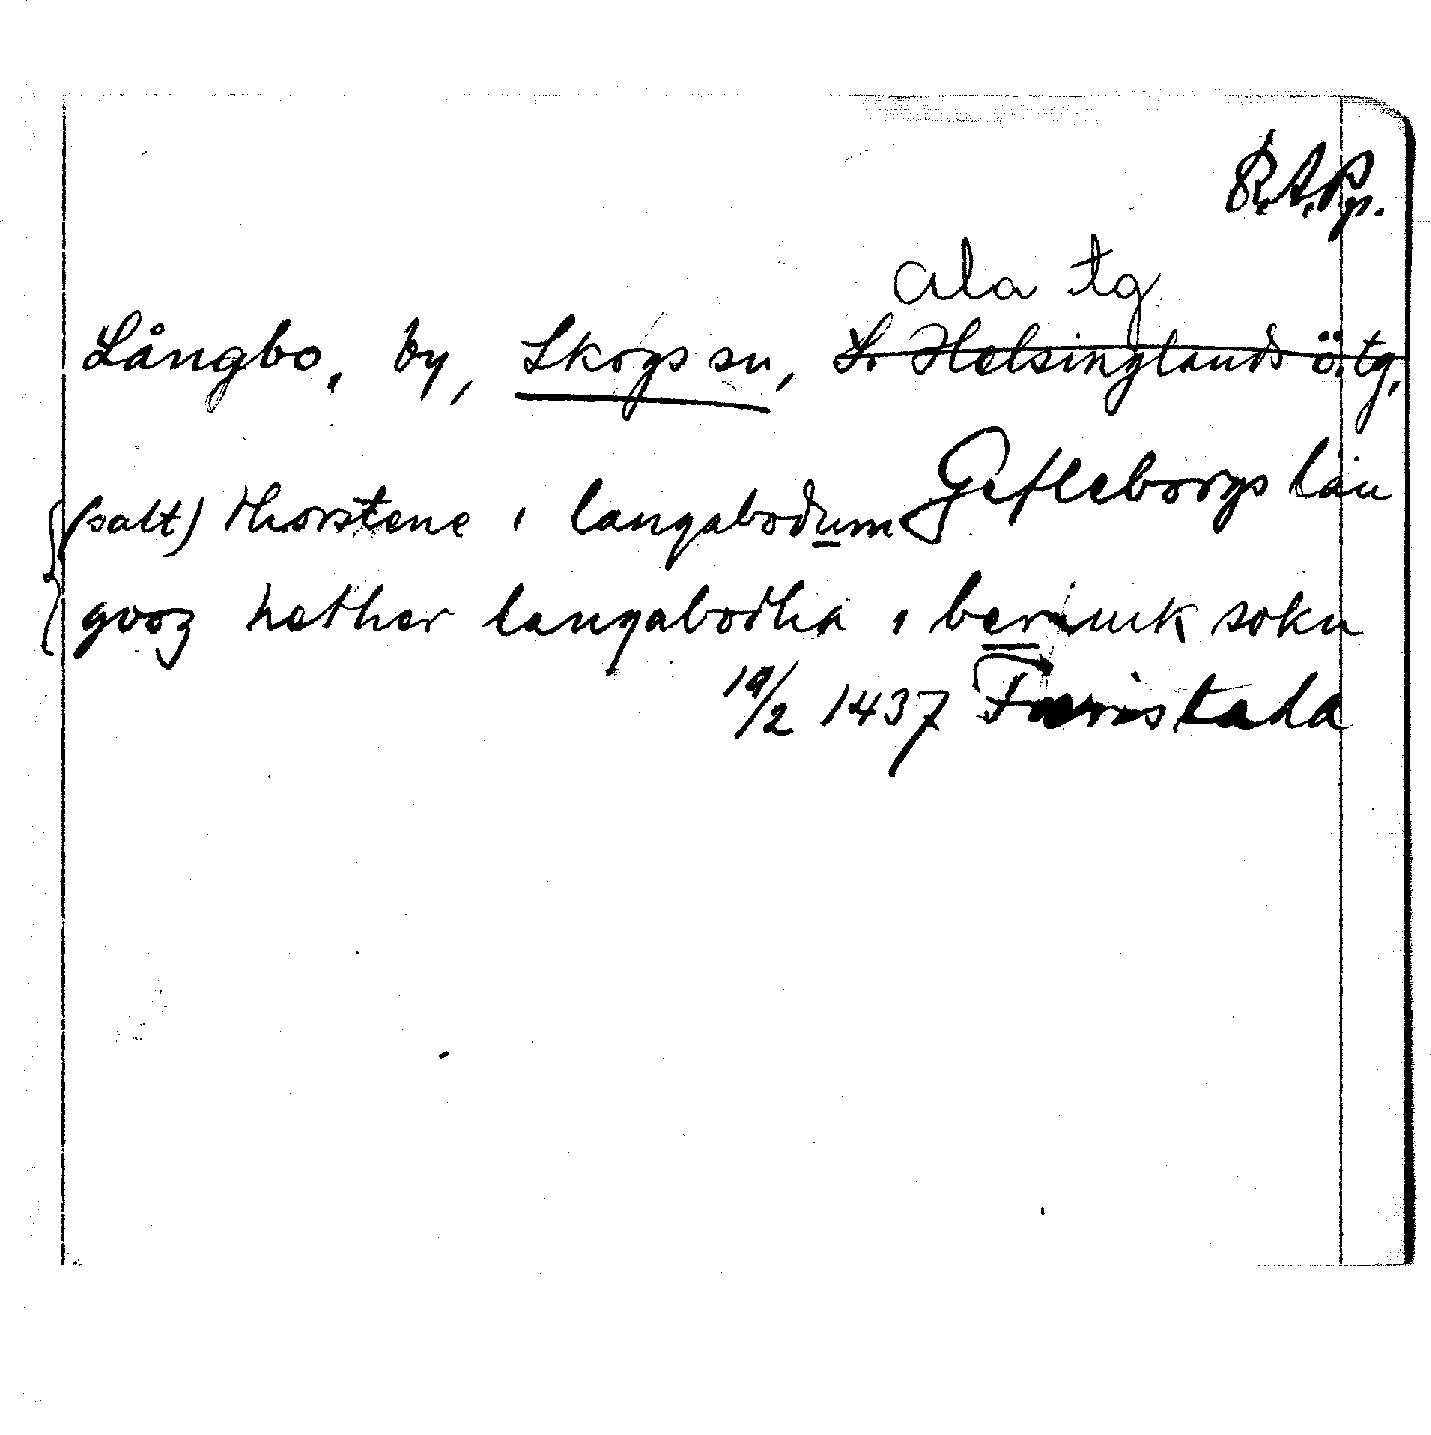 R.A.Pp.
Ala tg
Långbo, by, Skogs sn, S. Helsinglands ö. tg,
Gefleborgs län
(salt) Thorstene i langabodum
gooz nether langabodha i beruuik sokn
19/2 1437 Færistada